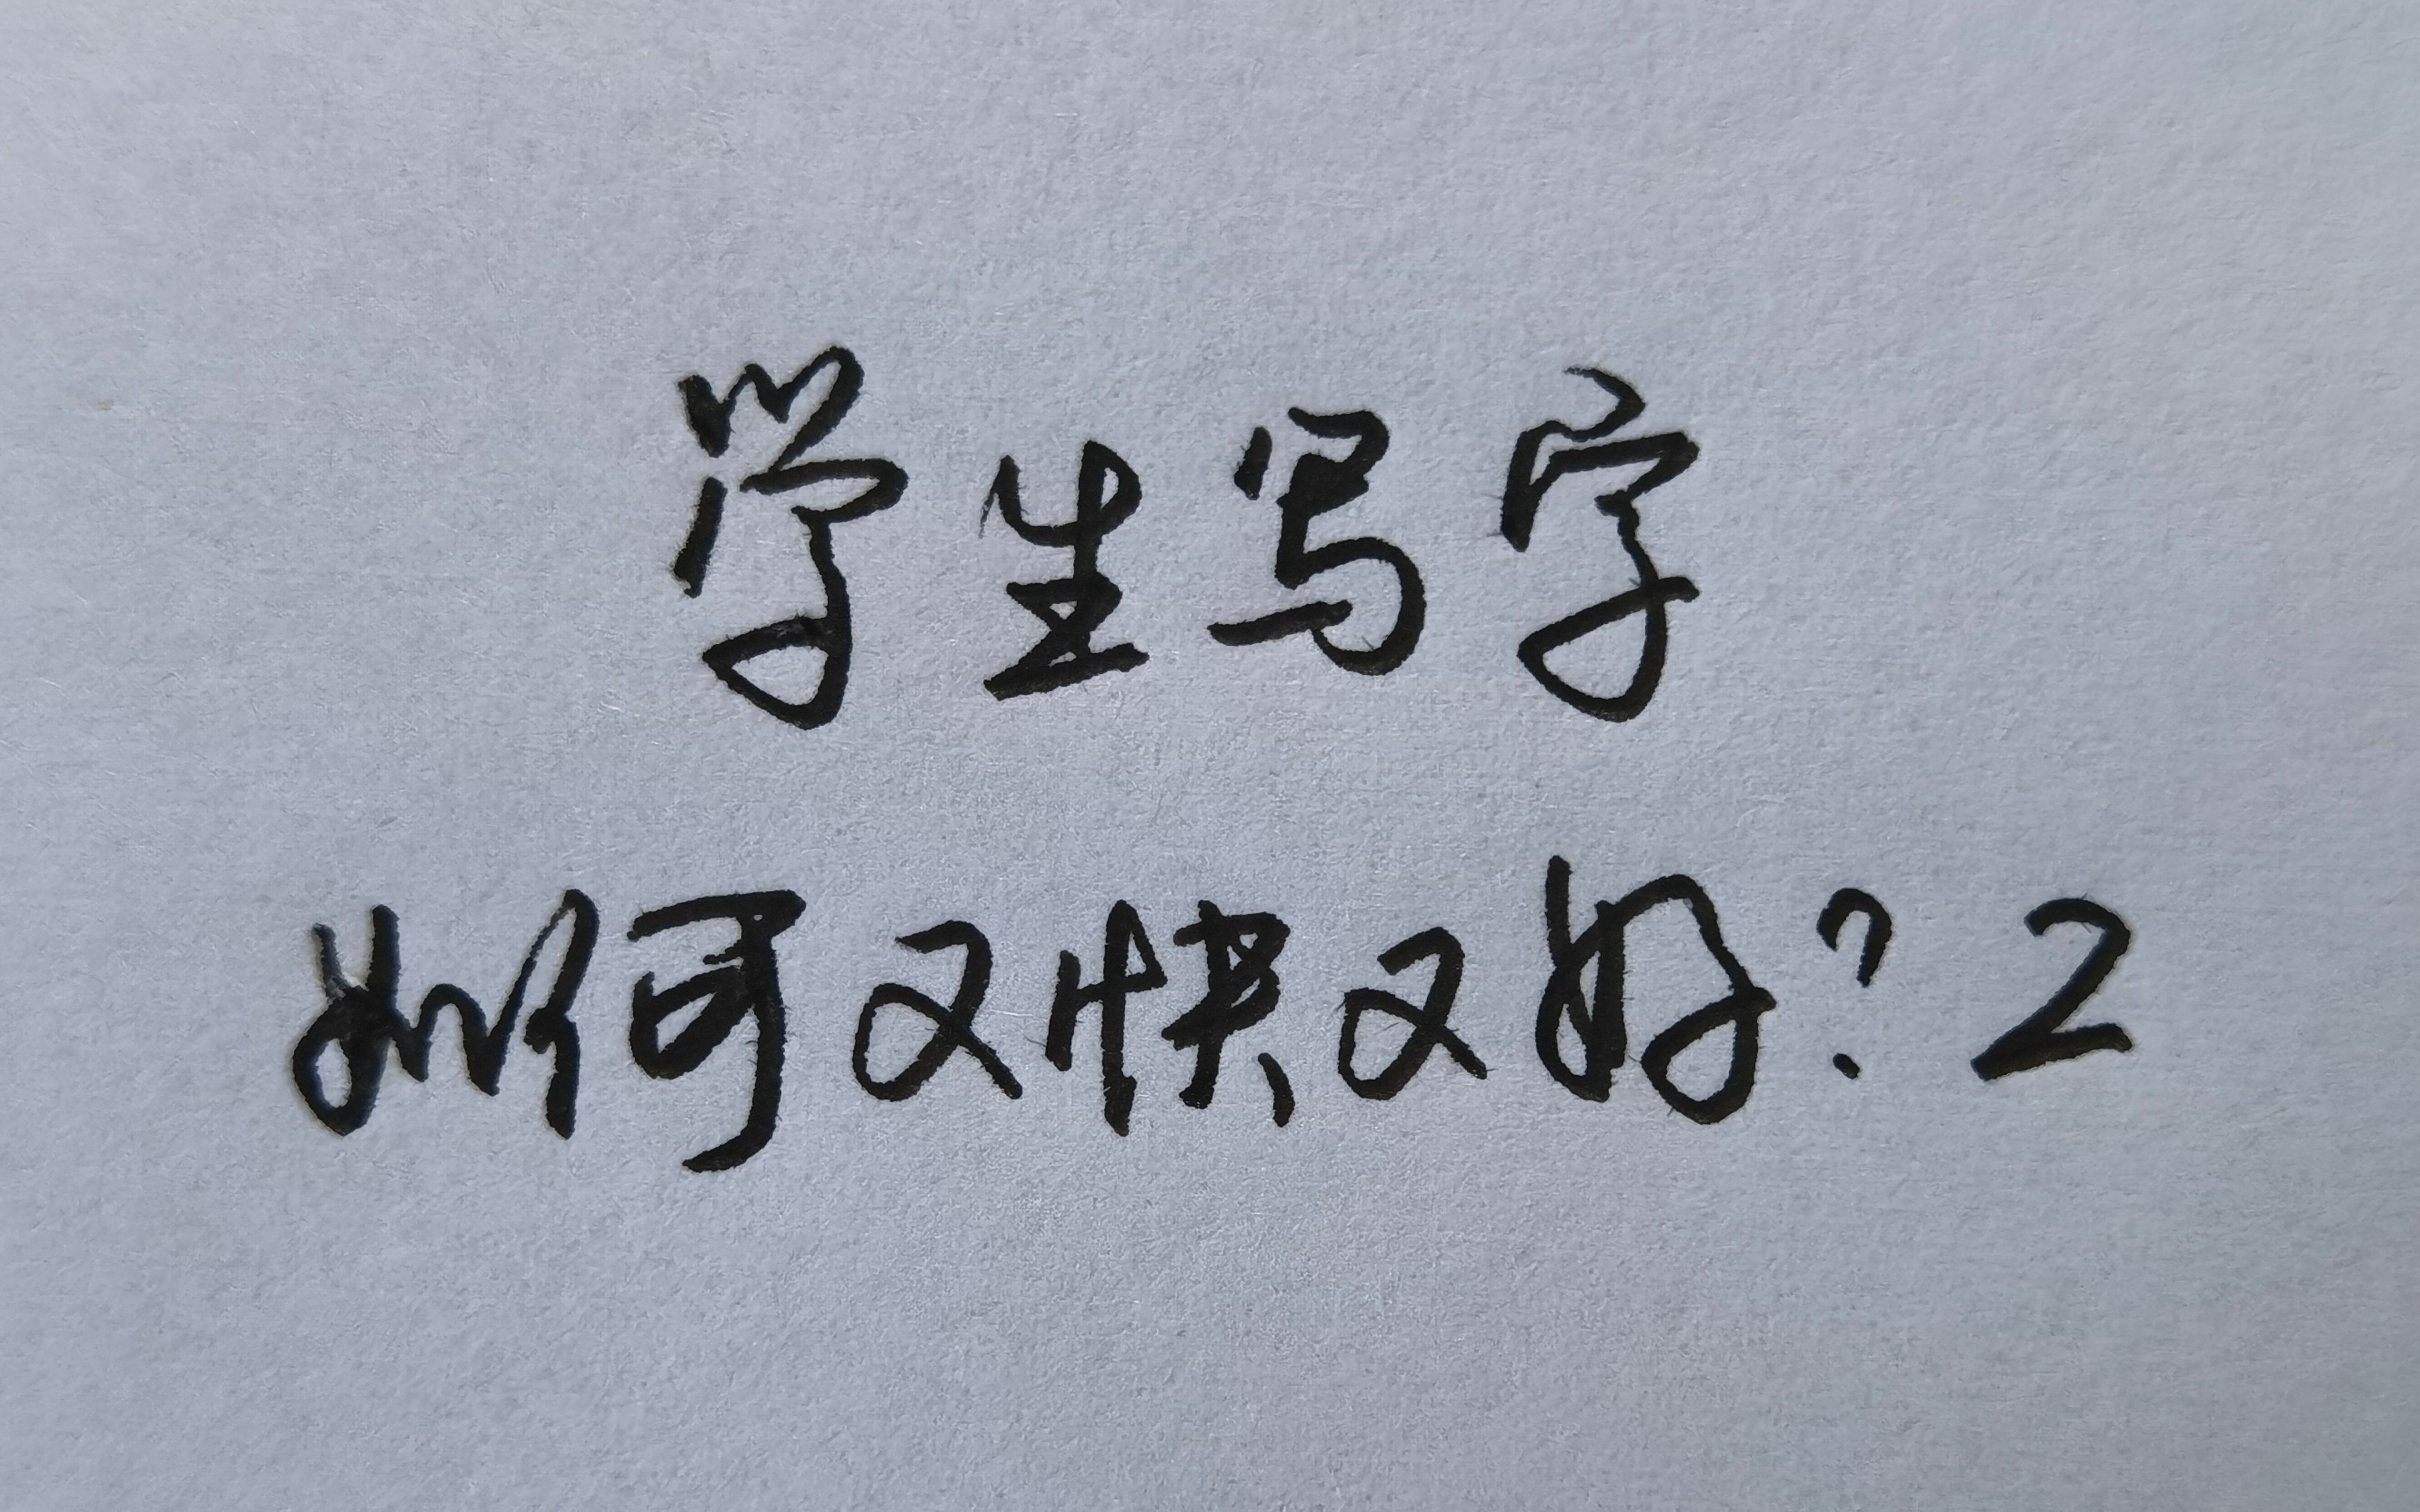 学生写字
如何又快又好？2